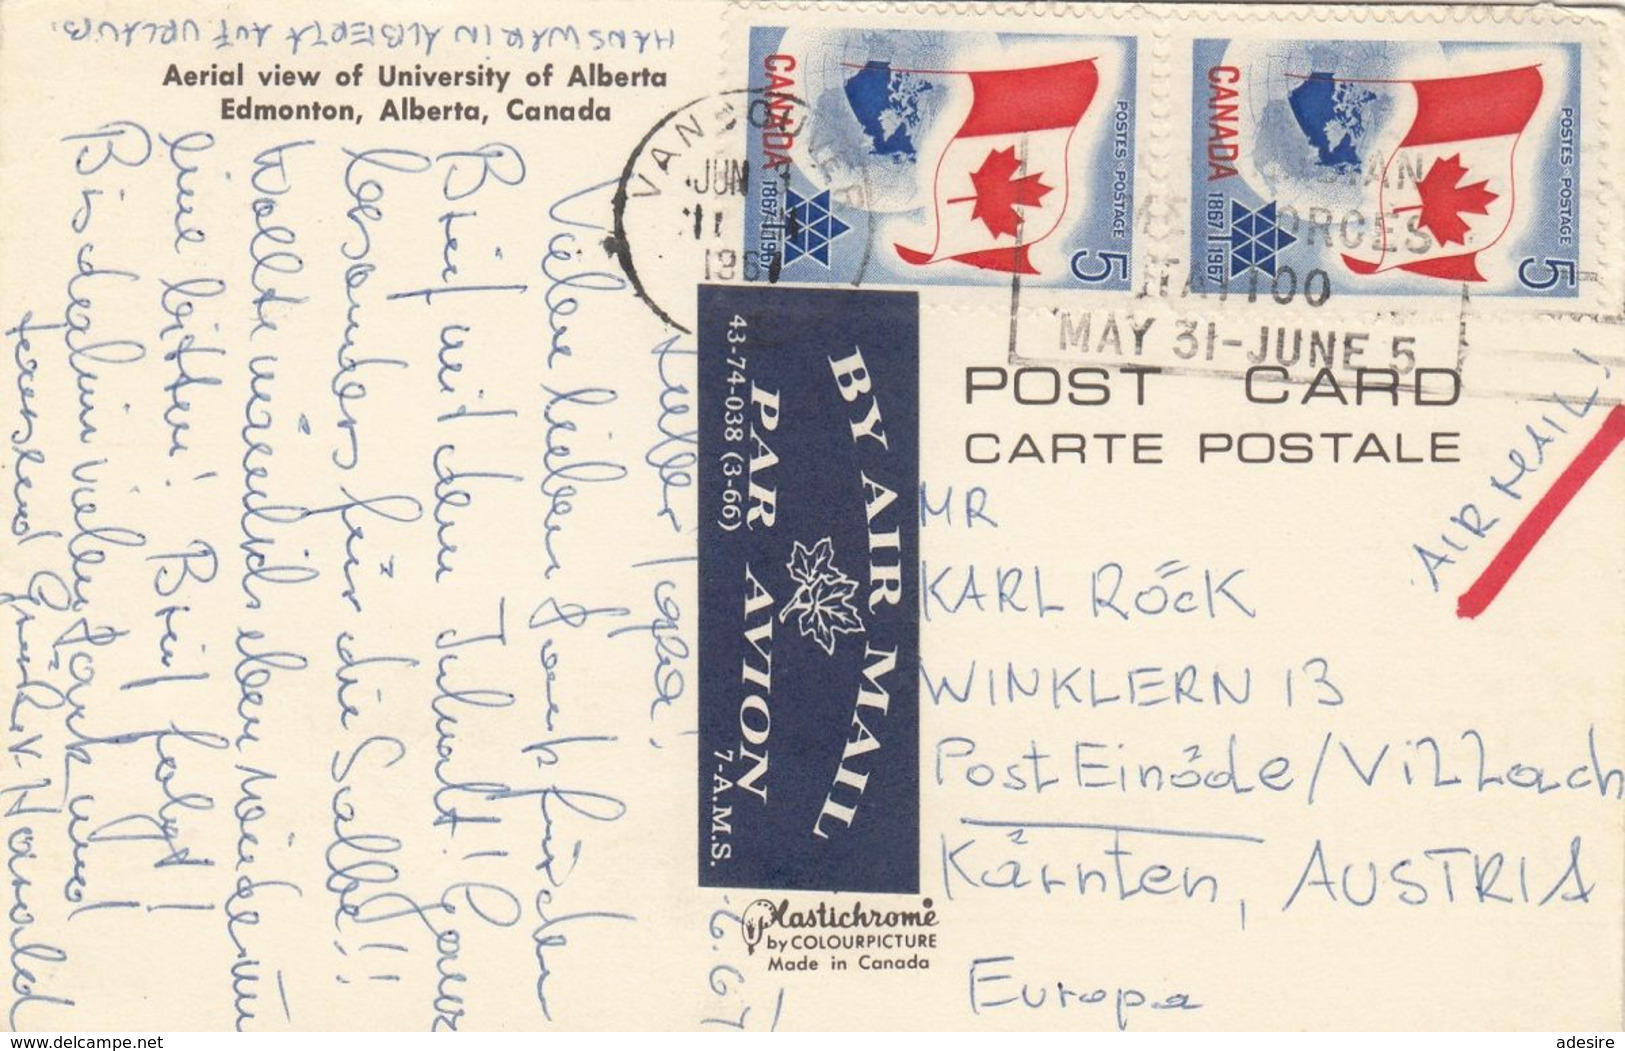 HANS WAR IN ALBERTA AUF URLAUB.
Aerial view of University of Alberta
Edmonton, Alberta, Canada
-6.67
Lieber Papa!
Vielen lieben Dank für den
Brief mit dem Inhalt! Ganz
besonders für die Salbe!!
Wollte nämlich eben wieder um
eine bitten! Brief folgt!
Bis dahin vielen Dank und
tausend Grüße v. Harald
VANCOUVER
JUN
11
196
CANADA
1867 1967
POSTES POSTAGE
5
CANADA
1867 1967
POSTES POSTAGE
5
DIAN
FORCES
TATTOO
MAY 31-JUNE 5
BY AIR MAIL
PAR AVION
43-74-038 (3-66)
7-A.M.S.
POST CARD
CARTE POSTALE
AIR MAIL!
MR
KARL RÖCK
WINKLERN 13
Post Einöde/Villach
Kärnten, AUSTRIA
Europa
Plastichrome
by COLOURPICTURE
Made in Canada
www.delcampe.net
adesire